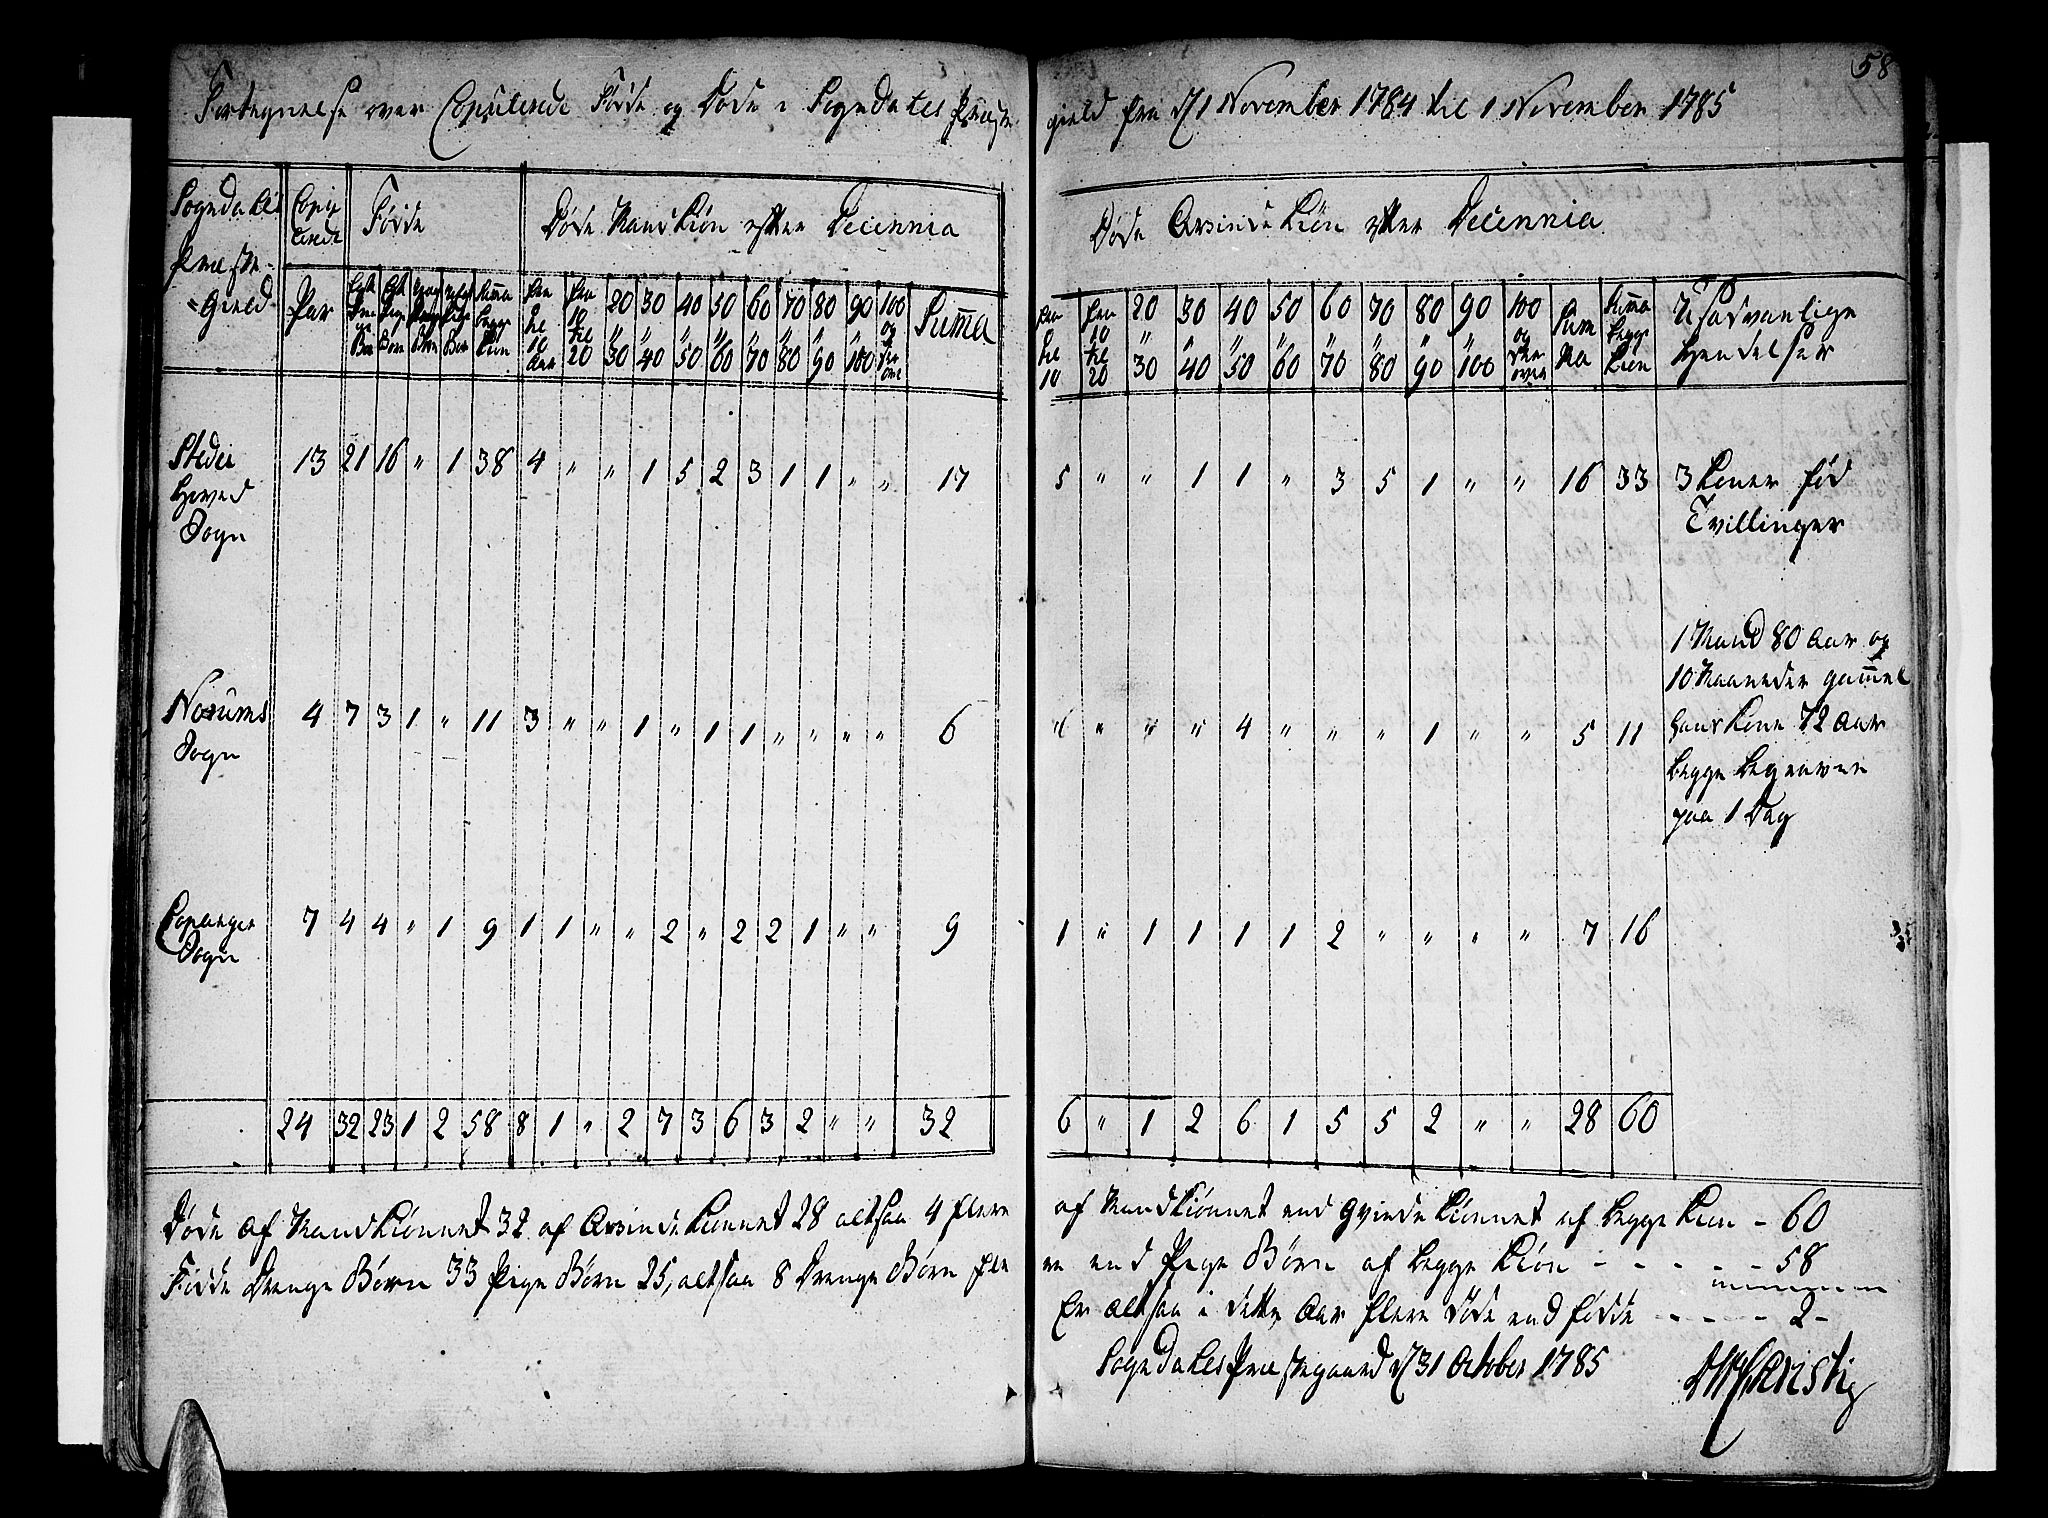 58
Fortegnelse over Copulerede Fødde og Døde i Sogndahls Præste
gield fra d. 1 November 1784 til 1 November 1785
Sogndahls Præste-Gield Copulerede Fødde Døde Mandkiøn efter Decennia
Døde Qvindekiøn efter Decennia
Par Egte Drenge Børn Egte Pige Børn Uegte Drenge Børn Uegte Pige Børn Summa begge Kiøn Fra til 10 Aar Fra 10 til 20 20 " 30 30 " 40 40 " 50 50 " 60 60 " 70 70 " 80 80 " 90 90 " 100 100 og der over Summa
Fra til 10 Fra 10 til 20 20 " 30 30 " 40 40 " 50 50 " 60 60 " 70 70 " 80 80 " 90 90 " 100 100 og der over Summa Summa begge Kiøn Usædvanlige Hendelser
Stedie Hoved Sogn 13 21 16 " 1 38 4 " " 1 5 2 3 1 1 " " 17
5 " " 1 1 " 3 5 1 " " 16 33 3 Koner fød
Tvillinger
Norums Sogn 4 7 3 1 " 11 3 " " 1 " 1 1 " " " " 6
" " " 4 " " " 1 " " 5 11
1 Mand 80 Aar og
10 Maaneder gammel
hans Kone 72 Aar
begge begraven
paa 1 Dag
Copanger Sogn 7 4 4 " 1 9 1 1 " " 2 " 2 2 1 " " 9
1 " 1 1 1 1 2 " " " " 7 16
24 32 23 1 2 58 8 1 " 2 7 3 6 3 2 " " 32
6 " 1 2 6 1 5 5 2 " " 28 60
Døde af Mandkiønnet 32 af Qvindekiønnet 28 altsaa 4 flere
af Mandkiønnet end Qvindekiønnet af begge Kiøn - 60
Fødde Drenge Børn 33 Pige Børn 25, altsaa 8 Drenge Børn fle
re end Pige Børn af begge Kiøn - - - - - 58
Er altsaa i dette Aar flere døde end fødde - - - - 2 -
Sogndahls Præstegaard d. 31 October 1785